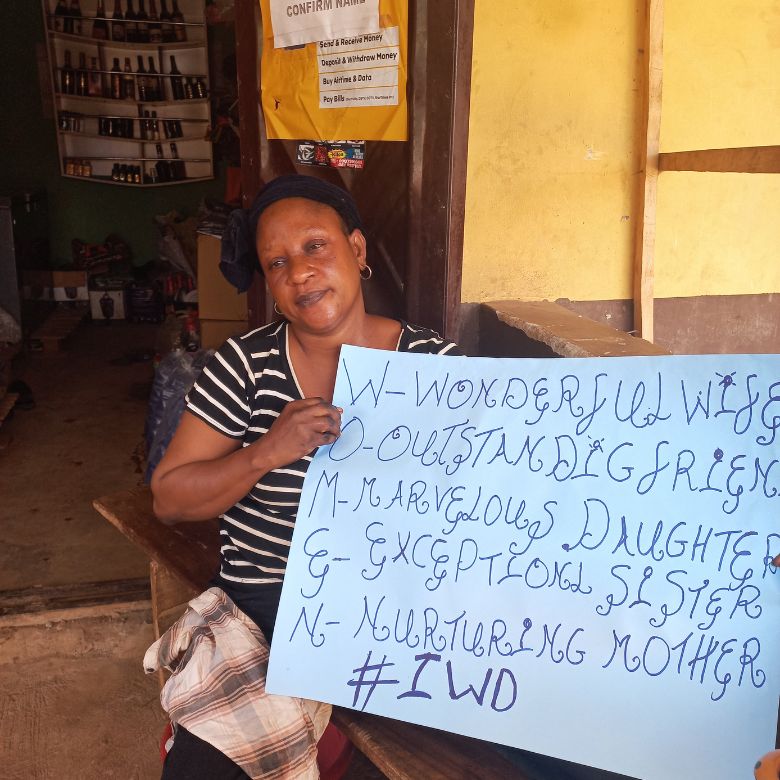 CONFIRM NAME
Send & Receive Money
Deposit & Withdraw Money
Buy Airtime & Data
Pay Bills
W-WONDERFUL WIFE
O-OUTSTANDIG FRIEN
M-MARVELOUS DAUGHTER
E-EXCEPTIONL SISTER
N-NURTURING MOTHER
#IWD